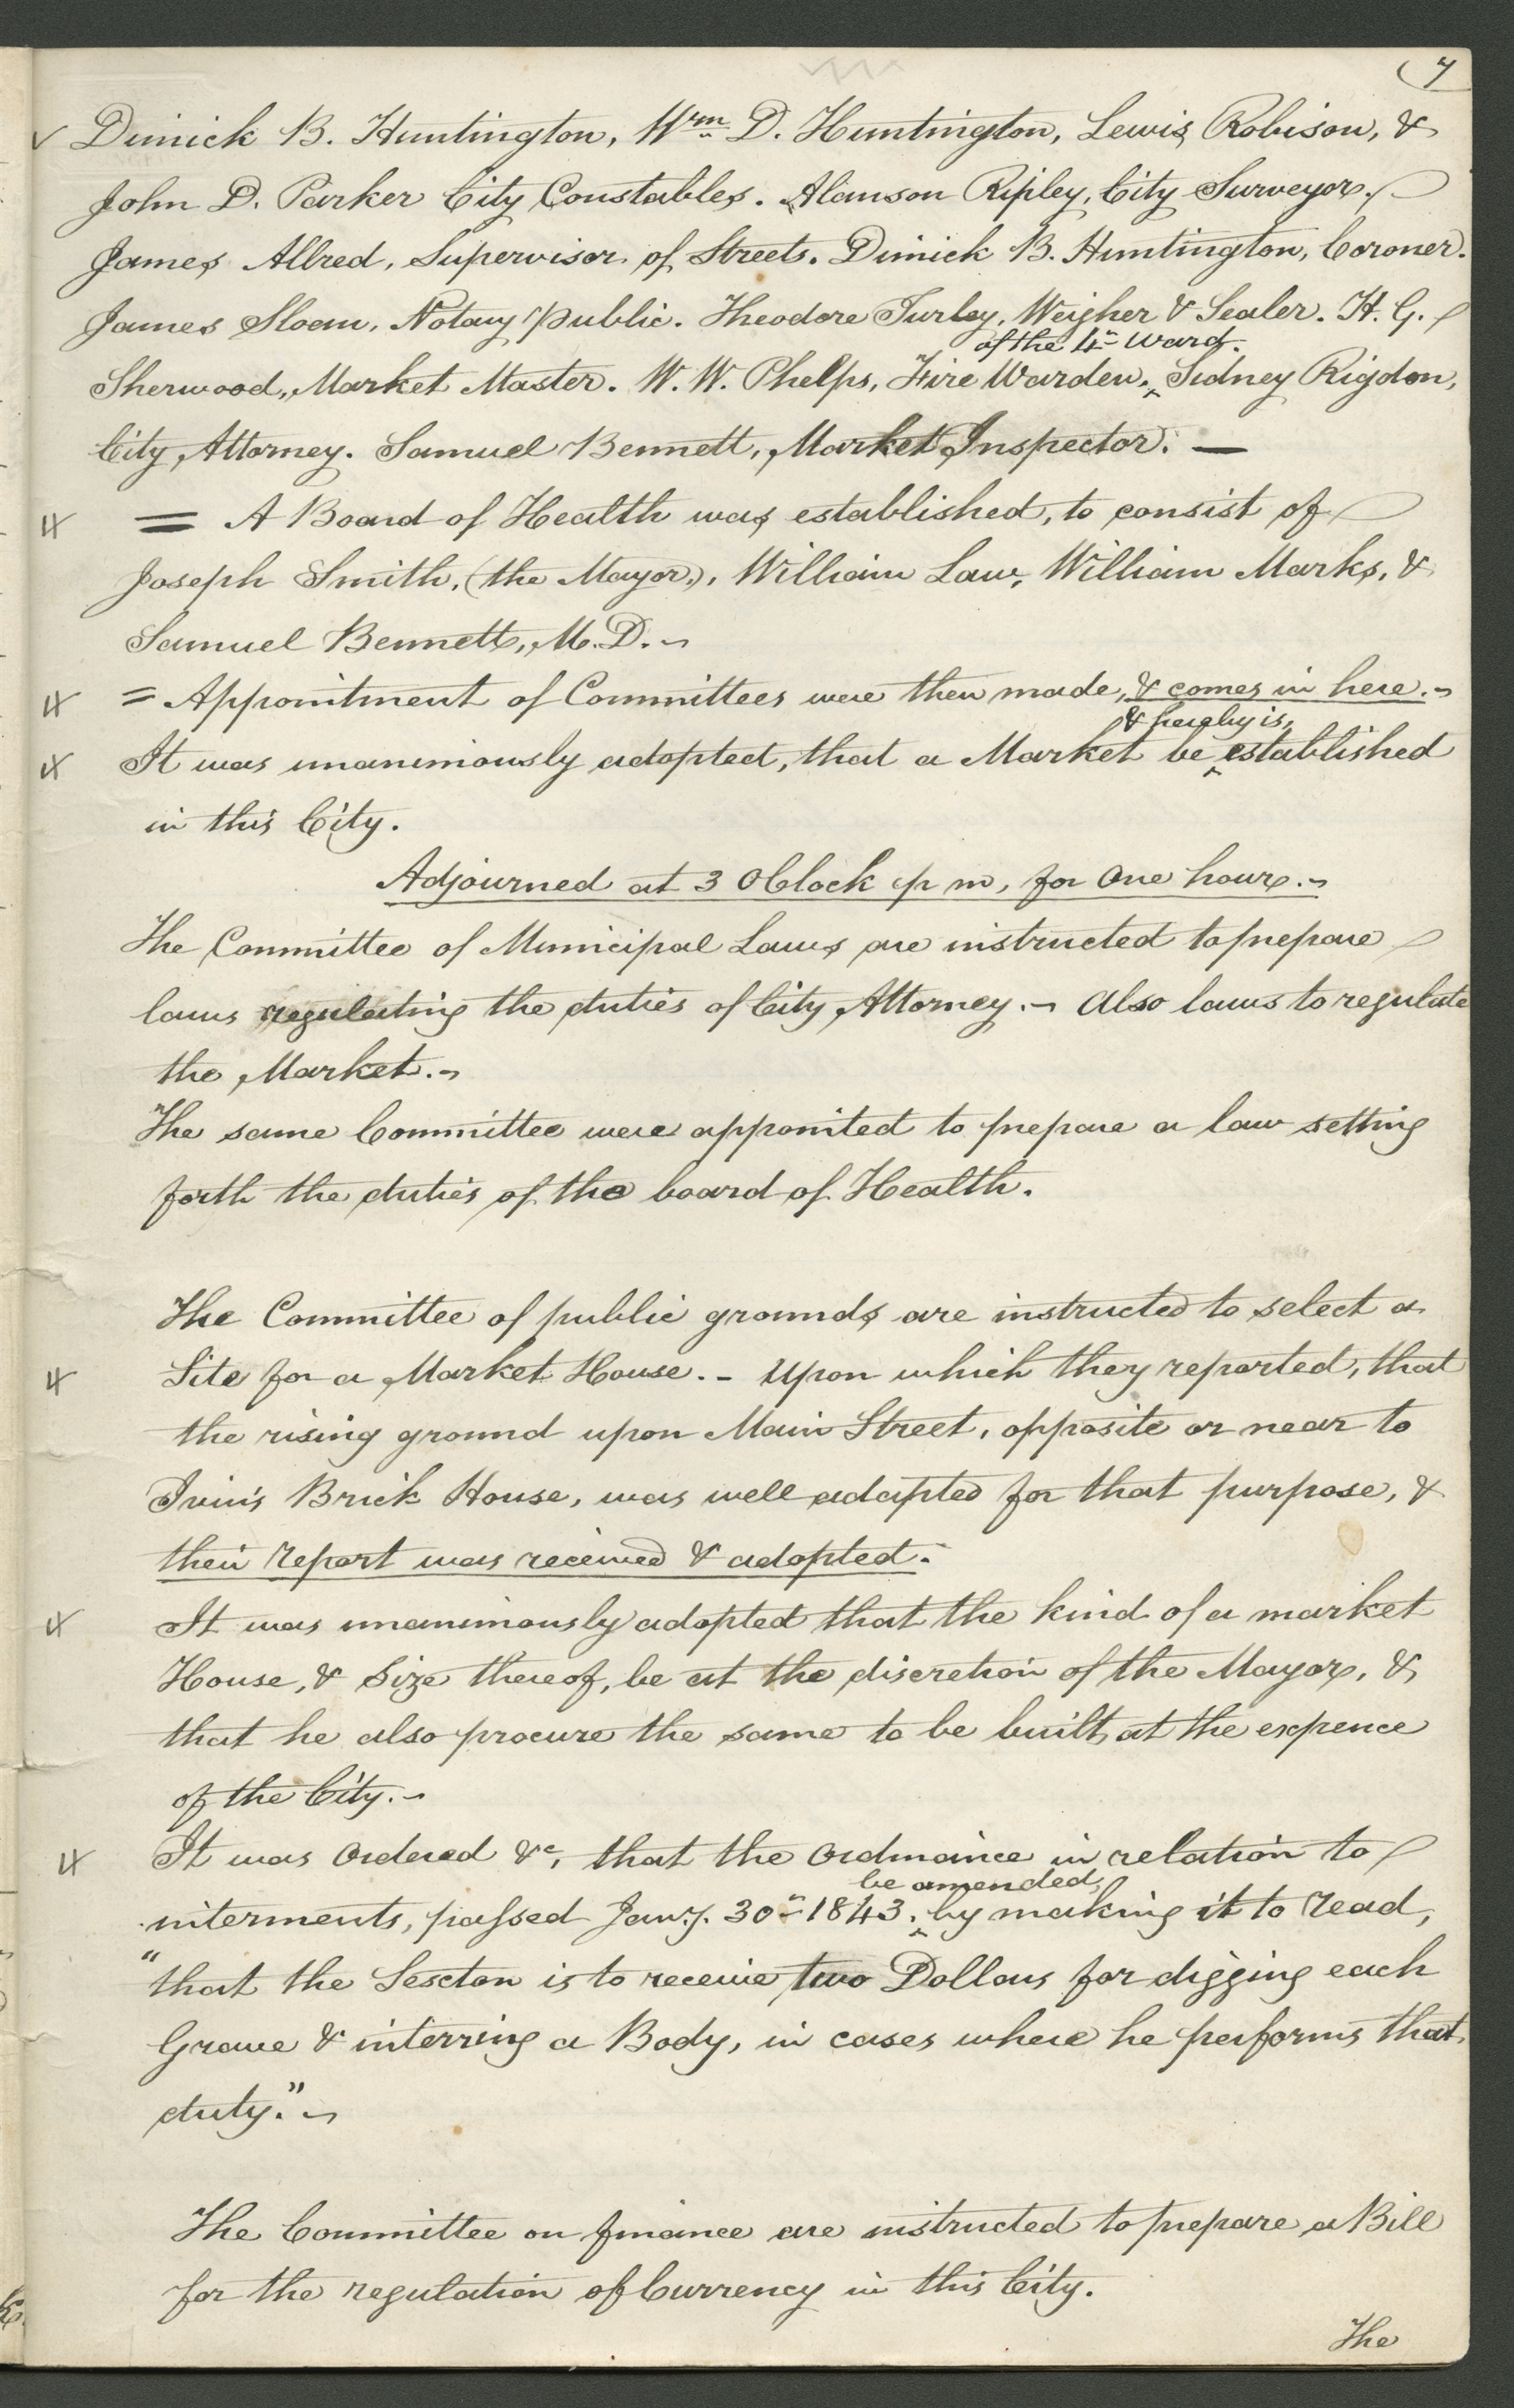 (7
Dimick B. Huntington, Wm. D. Huntington, Lewis Robison, &
John D. Parker City Constables. Alanson Ripley, City Surveyor.
James Allred, Supervisor of Streets. Dimick B. Huntington, Coroner.
James Sloan, Notary Public. Theodore Turley, Weigher & Sealer. H. G.
of the 4th Ward.
Sherwood, Market Master. W. W. Phelps, Fire Warden. ^ Sidney Rigdon,
City Attorney. Samuel Bennett, Market Inspector. —
= A Board of Health was established, to consist of
Joseph Smith, (the Mayor,), William Law, William Marks, &
Samuel Bennett, M. D. ~
= Appointment of Committees were then made, & comes in here. ~
& hereby is,
It was unanimously adopted, that a Market be ^ established
in this City.
Adjourned at 3 OClock p m, for One hour. ~
The Committee of Municipal Laws are instructed to prepare
laws regulating the duties of City Attorney. ~ Also laws to regulate
the Market. ~
The same Committee were appointed to prepare a law setting
forth the duties of the board of Health.
The Committee of public grounds are instructed to select a
Site for a Market House. – Upon which they reported, that
the rising ground upon Main Street, opposite or near to
Ivin's Brick House, was well adapted for that purpose, &
their report was received & adopted.
It was unanimously adopted that the kind of a market
House, & Size thereof, be at the discretion of the Mayor, &
that he also procure the same to be built, at the expence
of the City. ~
It was Ordered &c, that the Ordinance in relation to
be amended,
interments, passed Jany. 30th 1843. ^ by making it to read,
"that the Sexton is to receive two Dollars for digging each
Grave & interring a Body, in cases where he performs that
duty." ~
The Committee on finance are instructed to prepare a Bill
for the regulation of Currency in this City.
The